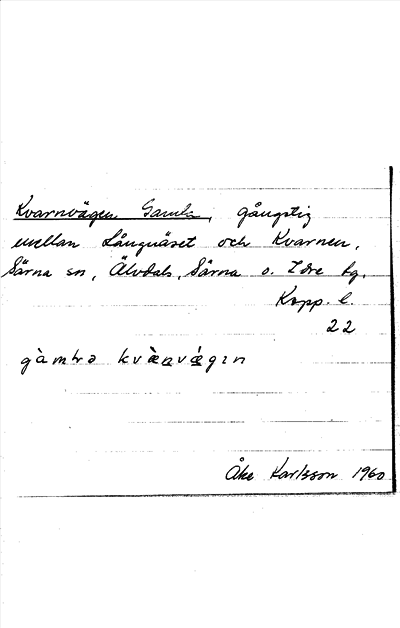 Kvarnvägen, Gamla, gångstig
mellan Långnäset och Kvarnen,
Särna sn, Älvdals, Särna o. Idre tg,
Kopp. l.
22
Åke Karlsson 1960